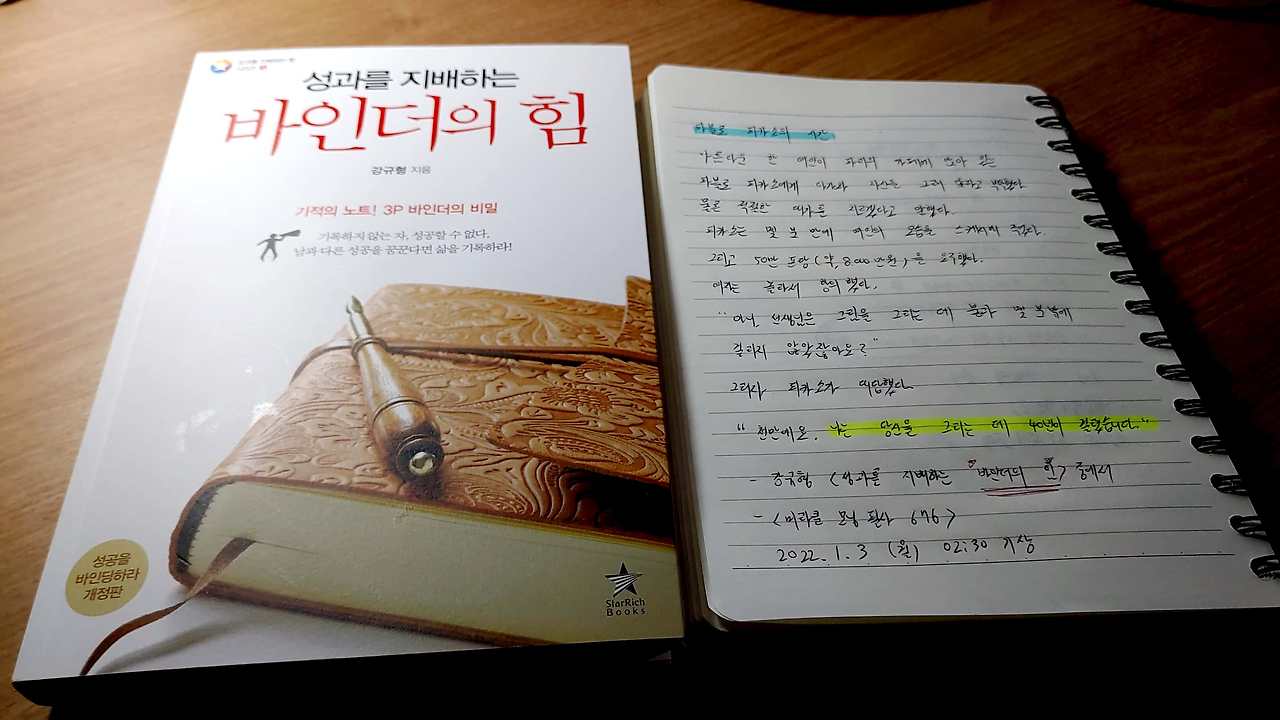 성과를 지배하는
바인더의 힘
강규형 지음
기적의 노트! 3P 바인더의 비밀
기록하지 않는 자, 성공할 수 없다.
남과 다른 성공을 꿈꾼다면 삶을 기록하라!
성공을
바인딩하라
개정판
StarRich
Books
파블로 피카소의 시간
아름다운 한 여인이 파리의 카페에 앉아 있는
파블로 피카소에게 다가와 자신을 그려 달라고 부탁했다.
물론 적절한 대가를 치르겠다고 말했다.
피카소는 몇 분 만에 여인의 모습을 스케치해 주었다.
그리고 50만 프랑(약, 8000만원)을 요구했다.
여자는 놀라서 항의했다.
"아니, 선생님은 그림을 그리는 데 불과 몇 분밖에
걸리지 않았잖아요?"
그러자 피카소가 대답했다.
"천만에요. 나는 당신을 그리는 데 40년이 걸렸습니다."
- 강규형 <성과를 지배하는 바인더의 힘> 중에서
- <미라클 모닝 필사 676>
2022. 1. 3 (월) 02:30 기상